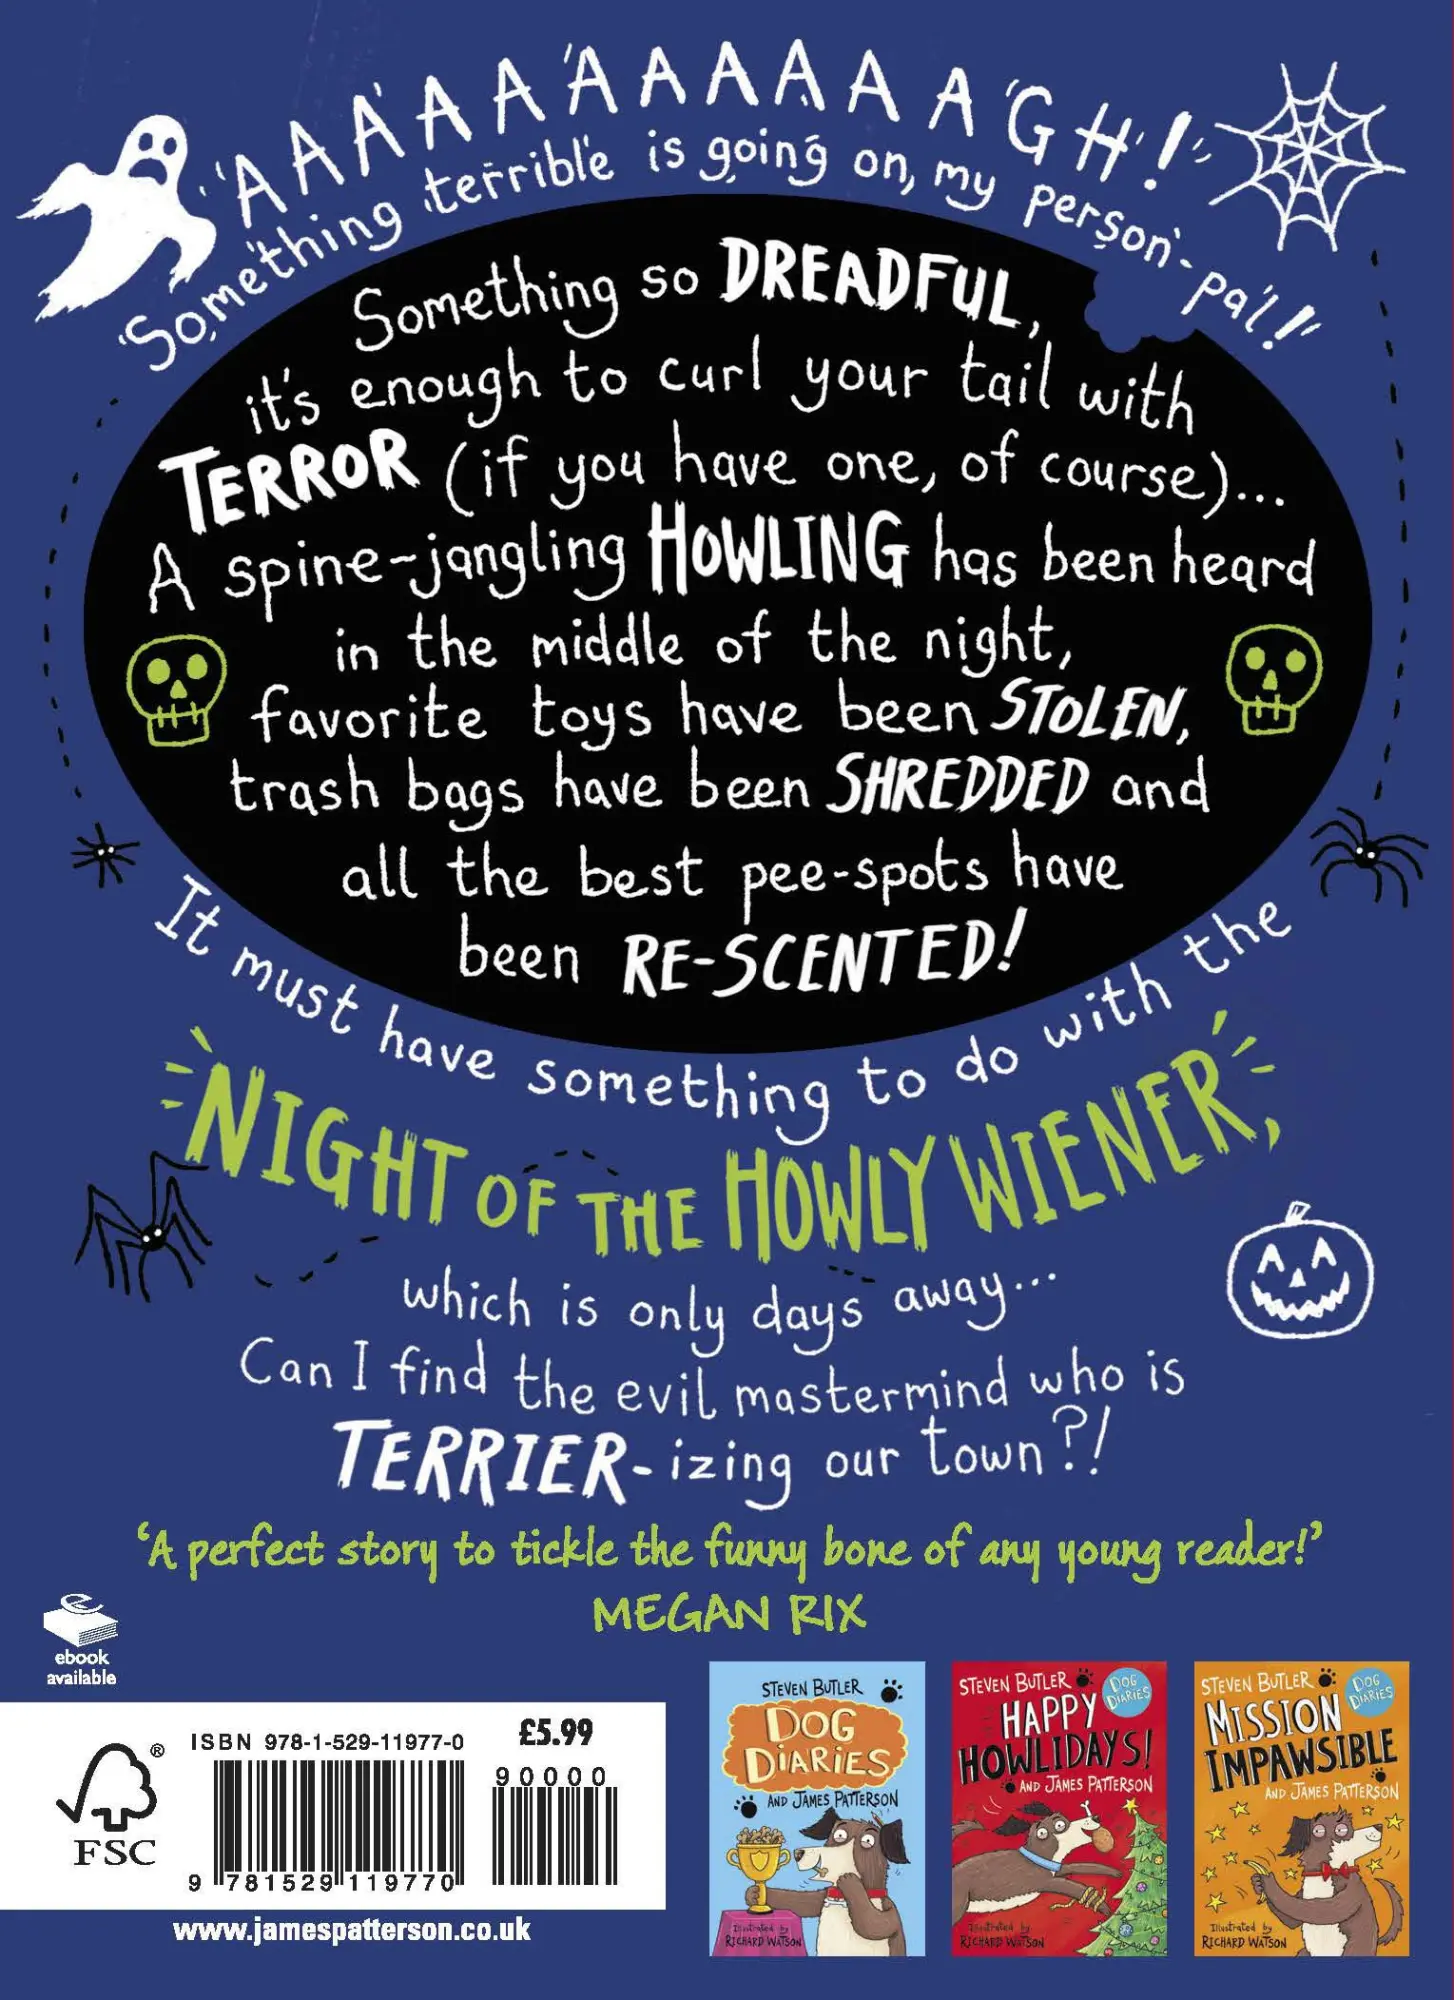 'AAAAAAAAAAAGH!'
'Something terrible is going on, my person-pal!'
Something so DREADFUL,
it's enough to curl your tail with
TERROR (if you have one, of course)...
A spine-jangling HOWLING has been heard
in the middle of the night,
favorite toys have been STOLEN,
trash bags have been SHREDDED and
all the best pee-spots have
been RE-SCENTED!
It must have something to do with the
NIGHT OF THE HOWLY WIENER,
which is only days away...
Can I find the evil mastermind who is
TERRIER-izing our town?!
'A perfect story to tickle the funny bone of any young reader!'
MEGAN RIX
e
ebook
available
ISBN 978-1-529-11977-0
£5.99
90000
®
FSC
9 781529 119770
www.jamespatterson.co.uk
STEVEN BUTLER
DOG
DIARIES
AND JAMES PATTERSON
Illustrated by
RICHARD WATSON
STEVEN BUTLER
DOG
DIARIES
HAPPY
HOWLIDAYS!
AND JAMES PATTERSON
Illustrated by
RICHARD WATSON
STEVEN BUTLER
DOG
DIARIES
MISSION
IMPAWSIBLE
AND JAMES PATTERSON
Illustrated by
RICHARD WATSON